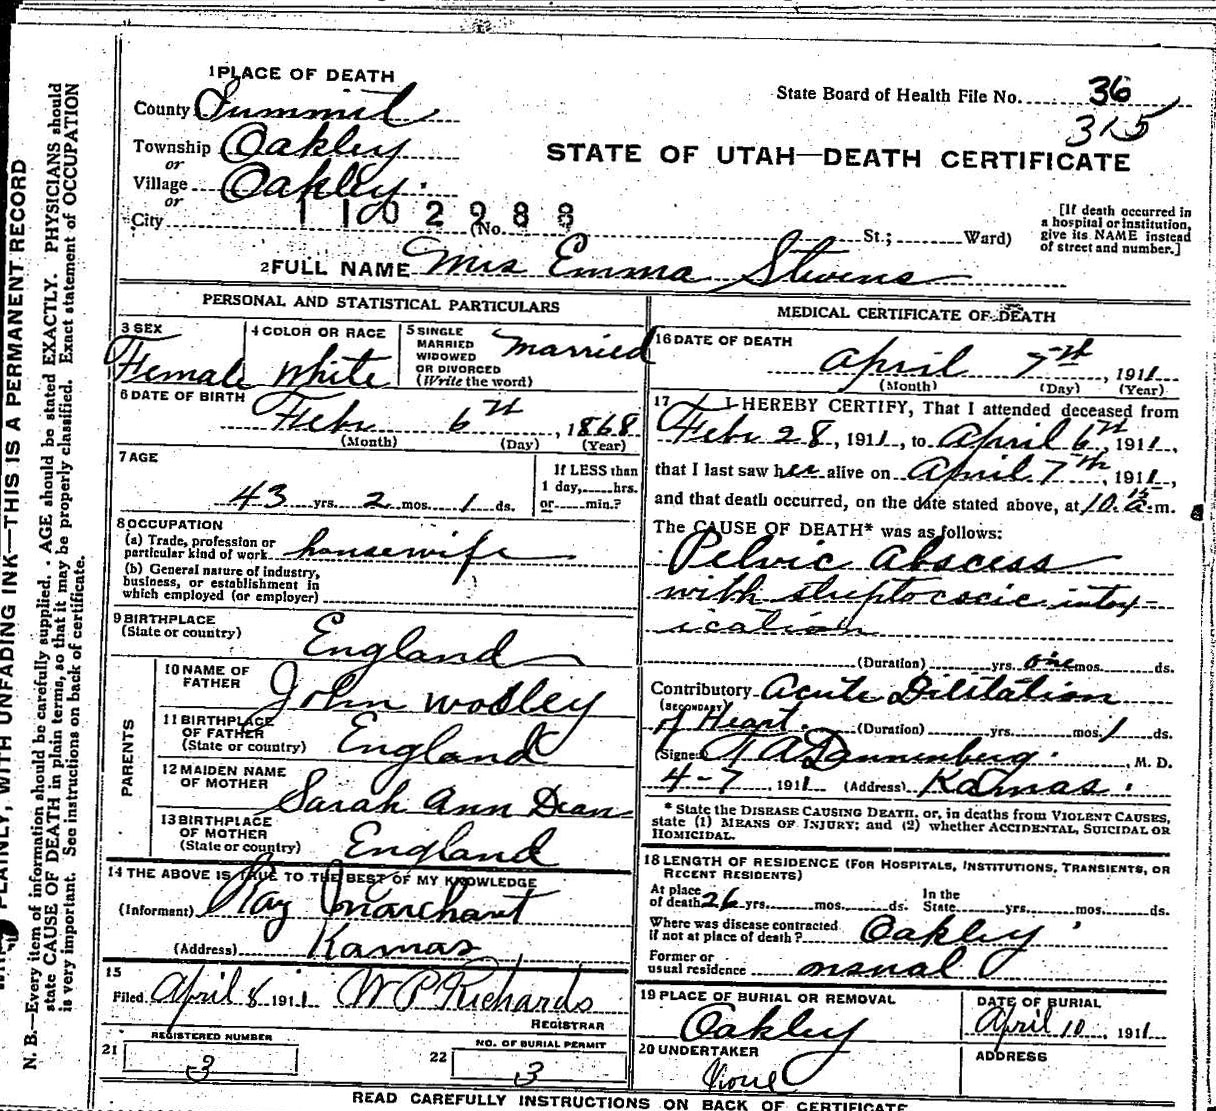 1 PLACE OF DEATH
County Summit
Township Oakley
or
Village Oakley
or
City (No. St.; Ward)
1102988
State Board of Health File No. 36
315
STATE OF UTAH—DEATH CERTIFICATE
[If death occurred in
a hospital or institution,
give its NAME instead
of street and number.]
2 FULL NAME Mrs Emma Stevens
PERSONAL AND STATISTICAL PARTICULARS
3 SEX
Female
4 COLOR OR RACE
White
5 SINGLE
MARRIED
WIDOWED
OR DIVORCED
(Write the word)
Married
6 DATE OF BIRTH
Febr 6th, 1868
(Month) (Day) (Year)
7 AGE
43 yrs. 2 mos. 1 ds.
If LESS than
1 day, hrs.
or min.?
8 OCCUPATION
(a) Trade, profession or
particular kind of work housewife
(b) General nature of industry,
business, or establishment in
which employed (or employer)
9 BIRTHPLACE
(State or country)
England
PARENTS
10 NAME OF
FATHER
John Woolley
11 BIRTHPLACE
OF FATHER
(State or country)
England
12 MAIDEN NAME
OF MOTHER
Sarah Ann Dean
13 BIRTHPLACE
OF MOTHER
(State or country)
England
14 THE ABOVE IS TRUE TO THE BEST OF MY KNOWLEDGE
(Informant) Ray Marchant
(Address) Kamas
15
Filed April 8 1911 W P Richards
REGISTRAR
REGISTERED NUMBER
21 3
NO. OF BURIAL PERMIT
22 3
MEDICAL CERTIFICATE OF DEATH
16 DATE OF DEATH
April 7th, 1911
(Month) (Day) (Year)
17 I HEREBY CERTIFY, That I attended deceased from
Febr 28, 1911, to April 6th, 1911,
that I last saw her alive on April 7th, 1911,
and that death occurred, on the date stated above, at 10.15 a.m.
The CAUSE OF DEATH* was as follows:
Pelvic Abscess
with streptococcic intox-
ication
(Duration) yrs. one mos. ds.
Contributory Acute Dilitation
(SECONDARY)
of Heart. (Duration) yrs. mos. 1 ds.
(Signed) Dannenberg, M. D.
4-7, 1911 (Address) Kamas.
* State the DISEASE CAUSING DEATH, or, in deaths from VIOLENT CAUSES,
state (1) MEANS OF INJURY; and (2) whether ACCIDENTAL, SUICIDAL OR
HOMICIDAL.
18 LENGTH OF RESIDENCE (FOR HOSPITALS, INSTITUTIONS, TRANSIENTS, OR
RECENT RESIDENTS)
At place
of death 26 yrs. mos. ds.
In the
State yrs. mos. ds.
Where was disease contracted
if not at place of death? Oakley
Former or
usual residence
19 PLACE OF BURIAL OR REMOVAL
Oakley
DATE OF BURIAL
April 10, 1911
20 UNDERTAKER
None
ADDRESS
READ CAREFULLY INSTRUCTIONS ON BACK OF CERTIFICATE
PLAINLY, WITH UNFADING INK—THIS IS A PERMANENT RECORD
N. B.—Every item of information should be carefully supplied. AGE should be stated EXACTLY. PHYSICIANS should
state CAUSE OF DEATH in plain terms, so that it may be properly classified. Exact statement of OCCUPATION
is very important. See instructions on back of certificate.